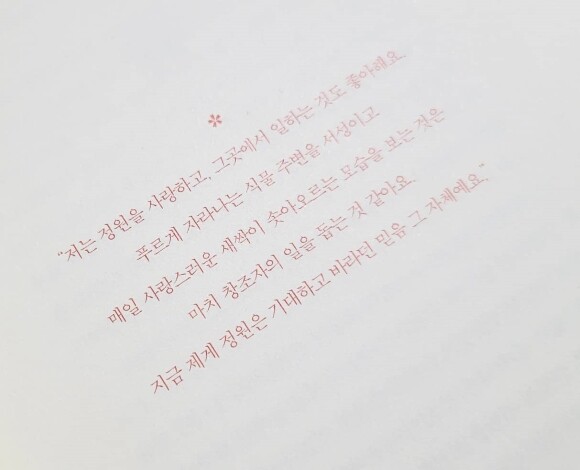 *
"저는 정원을 사랑하고, 그곳에서 일하는 것도 좋아해요.
푸르게 자라나는 식물 주변을 서성이고
매일 사랑스러운 새싹이 솟아오르는 모습을 보는 것은
마치 창조자의 일을 돕는 것 같아요.
지금 제게 정원은 기대하고 바라던 믿음 그 자체예요."